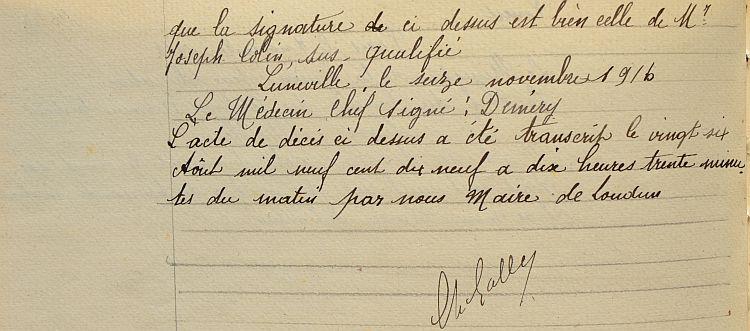 que la signature de ci dessus est bien celle de Mr
Joseph Colin, sus-qualifié
Luneville, le seize novembre 1916
Le Médecin Chef signé : Deméry
L'acte de décès ci dessus a été transcrit le vingt six
Août mil neuf cent dix neuf a dix heures trente minu
tes du matin par nous Maire de Loudun